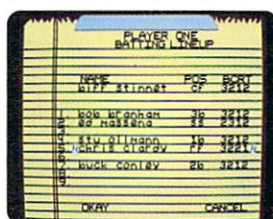 PLAYER ONE
BATTING LINEUP
NAME POS BCRT
biff stinnet cf 3212
1 bob branham 3b 3212
2 ed massena ss 3212
3
4 stu ollmann 1b 3212
5 chris clardy rf 3221
6
7 buck conley 2b 3212
8
9
OKAY CANCEL